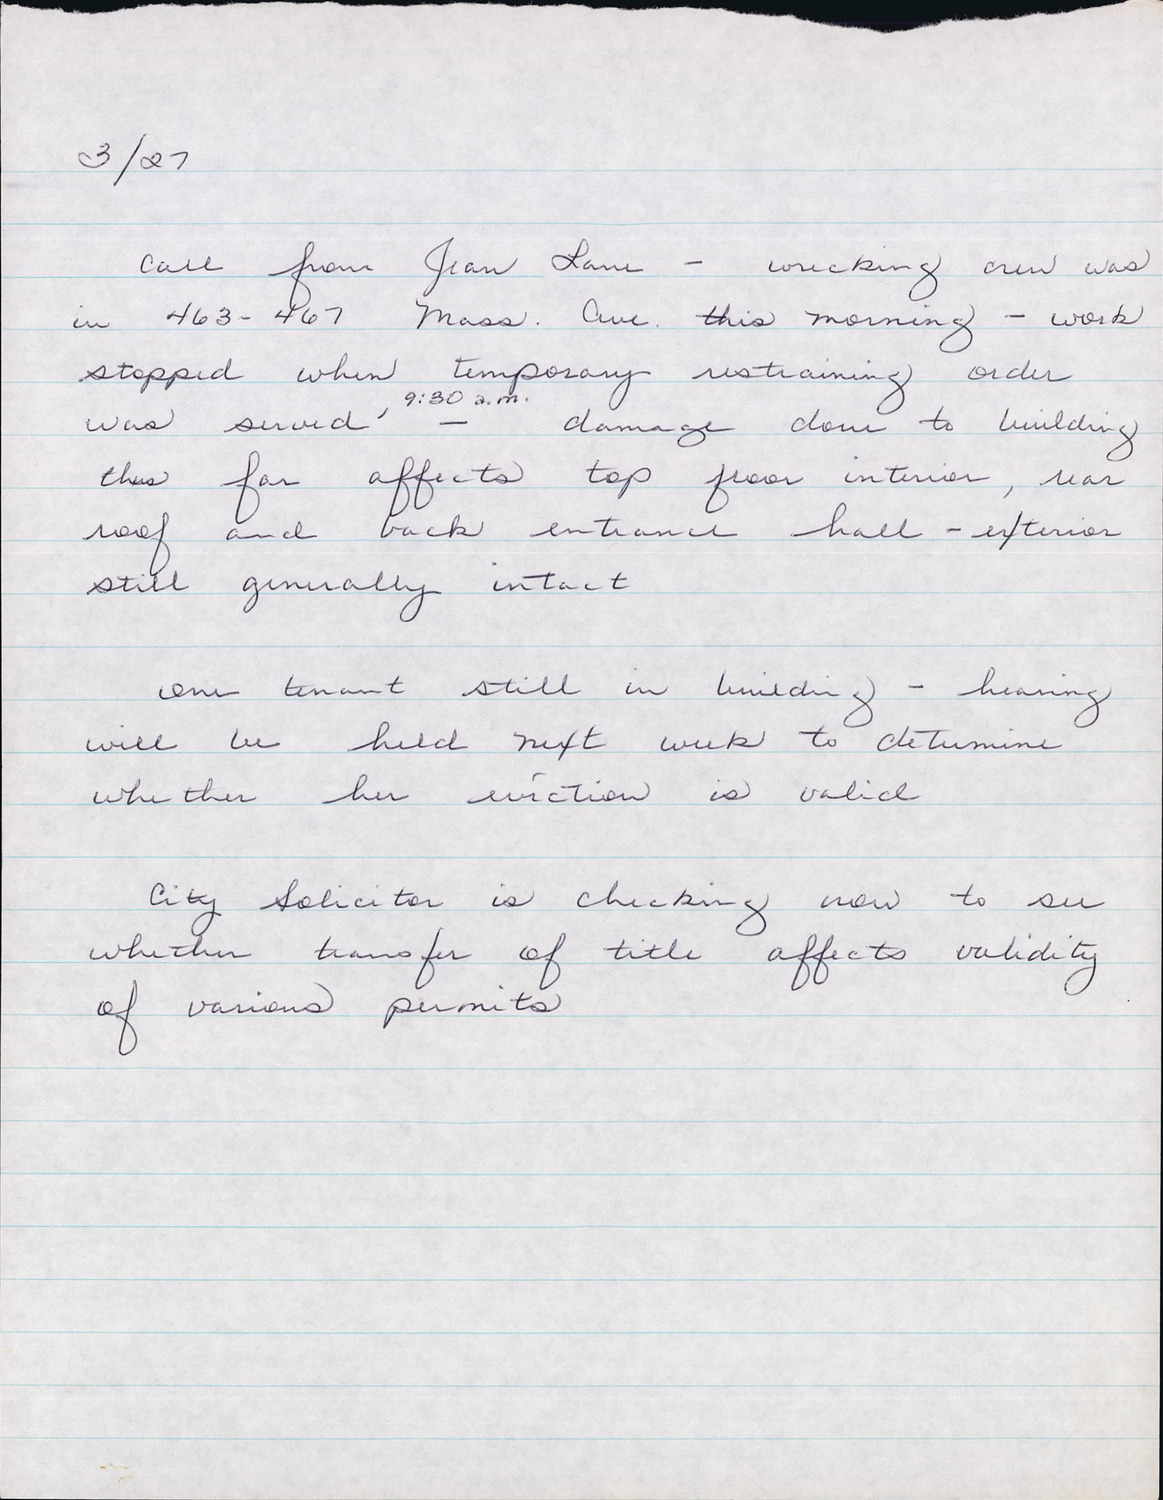 3/27
Call from Jean Lane - wrecking crew was
in 463-467 Mass. Ave. this morning - work
stopped when temporary restraining order
9:30 a.m.
was served, - damage done to building
thus far affects top floor interior, rear
roof and back entrance hall - exterior
still generally intact
One tenant still in building - hearing
will be held next week to determine
whether her eviction is valid
City Solicitor is checking now to see
whether transfer of title affects validity
of various permits